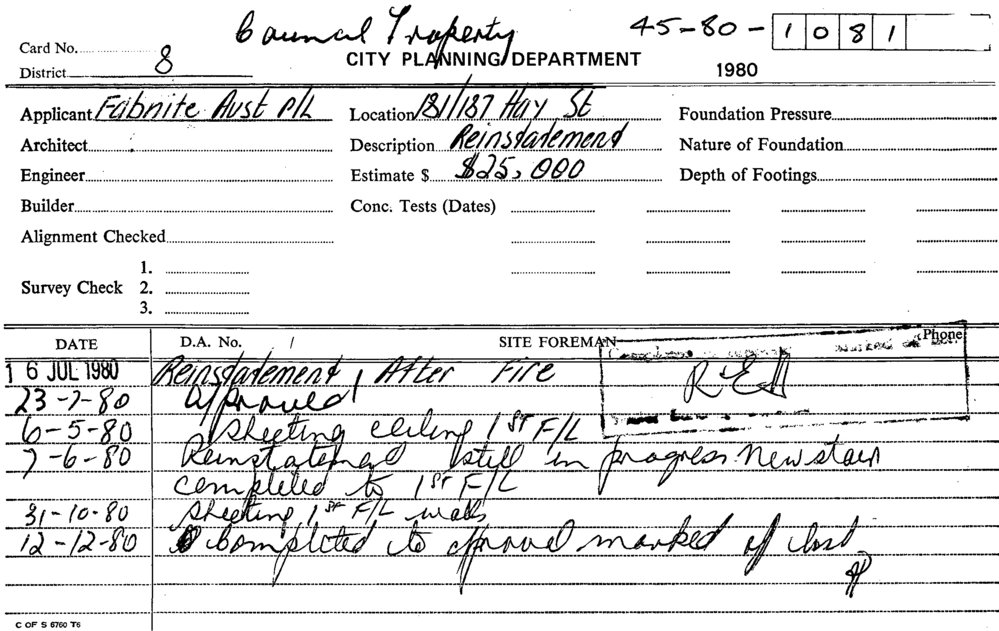 Council Property
45-80- 1081
Card No.
District 8
CITY PLANNING DEPARTMENT
1980
Applicant Fabnite Aust P/L
Location 181/187 Hay St
Foundation Pressure
Architect
Description Reinstatement
Nature of Foundation
Engineer
Estimate $ $25,000
Depth of Footings
Builder
Conc. Tests (Dates)
Alignment Checked
1.
Survey Check 2.
3.
DATE D.A. No. / SITE FOREMAN Phone
16 JUL 1980 Reinstatement After Fire
23-7-80 Approved
6-5-80 Sheeting ceiling 1ST F/L
7-6-80 Reinstatement still in progress. New stair
completed to 1ST F/L
31-10-80 Sheeting 1ST F/L walls
12-12-80 Completed to approval marked of
C OF S 6760 T6